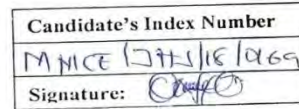 Candidate's Index Number
MNICE / JHS/18/0169
Signature: